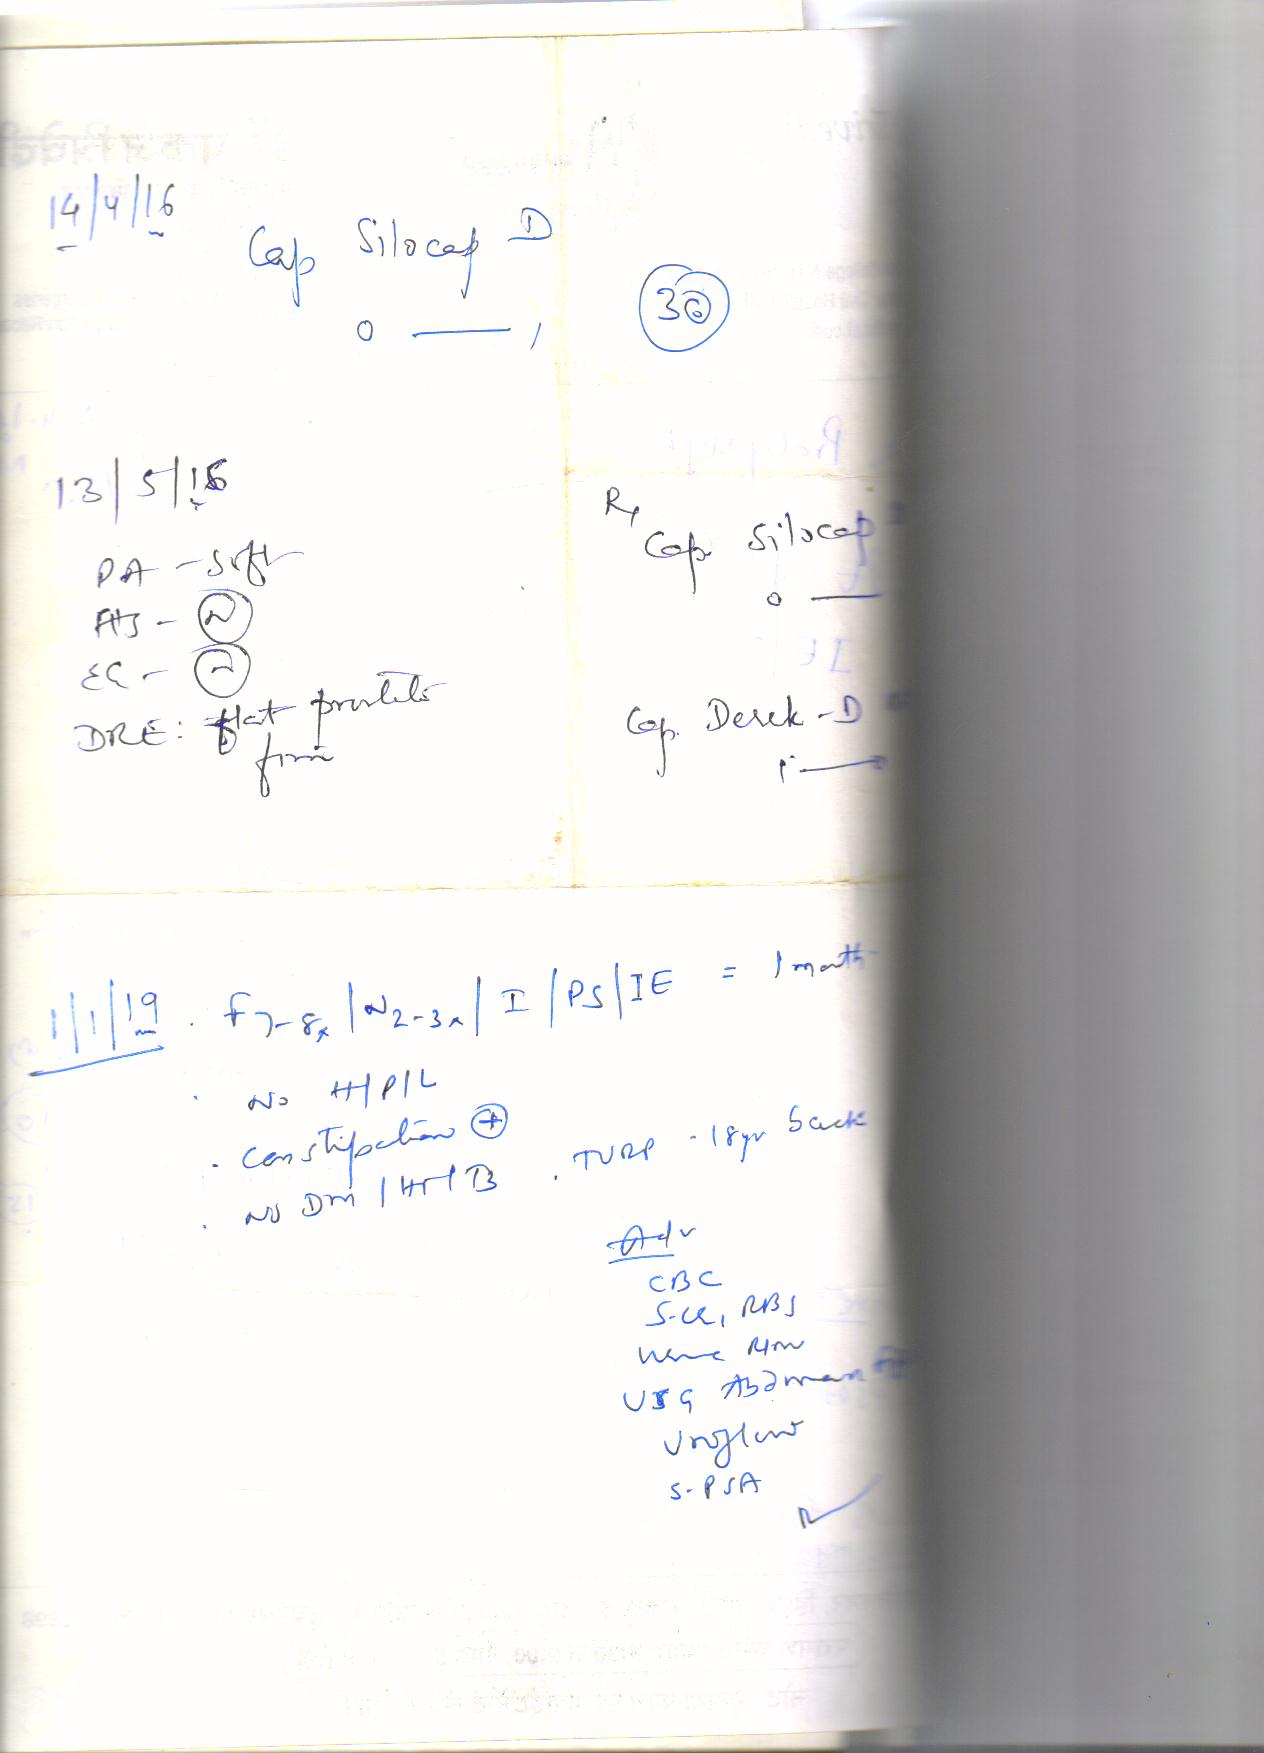 14/4/16
Cap Silocap D
30
0 —— 1
13/5/16
PA - Soft
EG -
DRE: flat prostate
firm
Rx
Cap Silocap
0 ——
Cap. Derek - D
1 ——
1/1/19 . F7-8x | N2-3x | I | PS | IE = 1 month
. No H/P/L
. Constipation ⊕
. No DM / HT / TB . TURP - 18yr back
Adv
CBC
S-Cr, RBS
Urine R/m
USG Abdomen
Uroflow
S-PSA